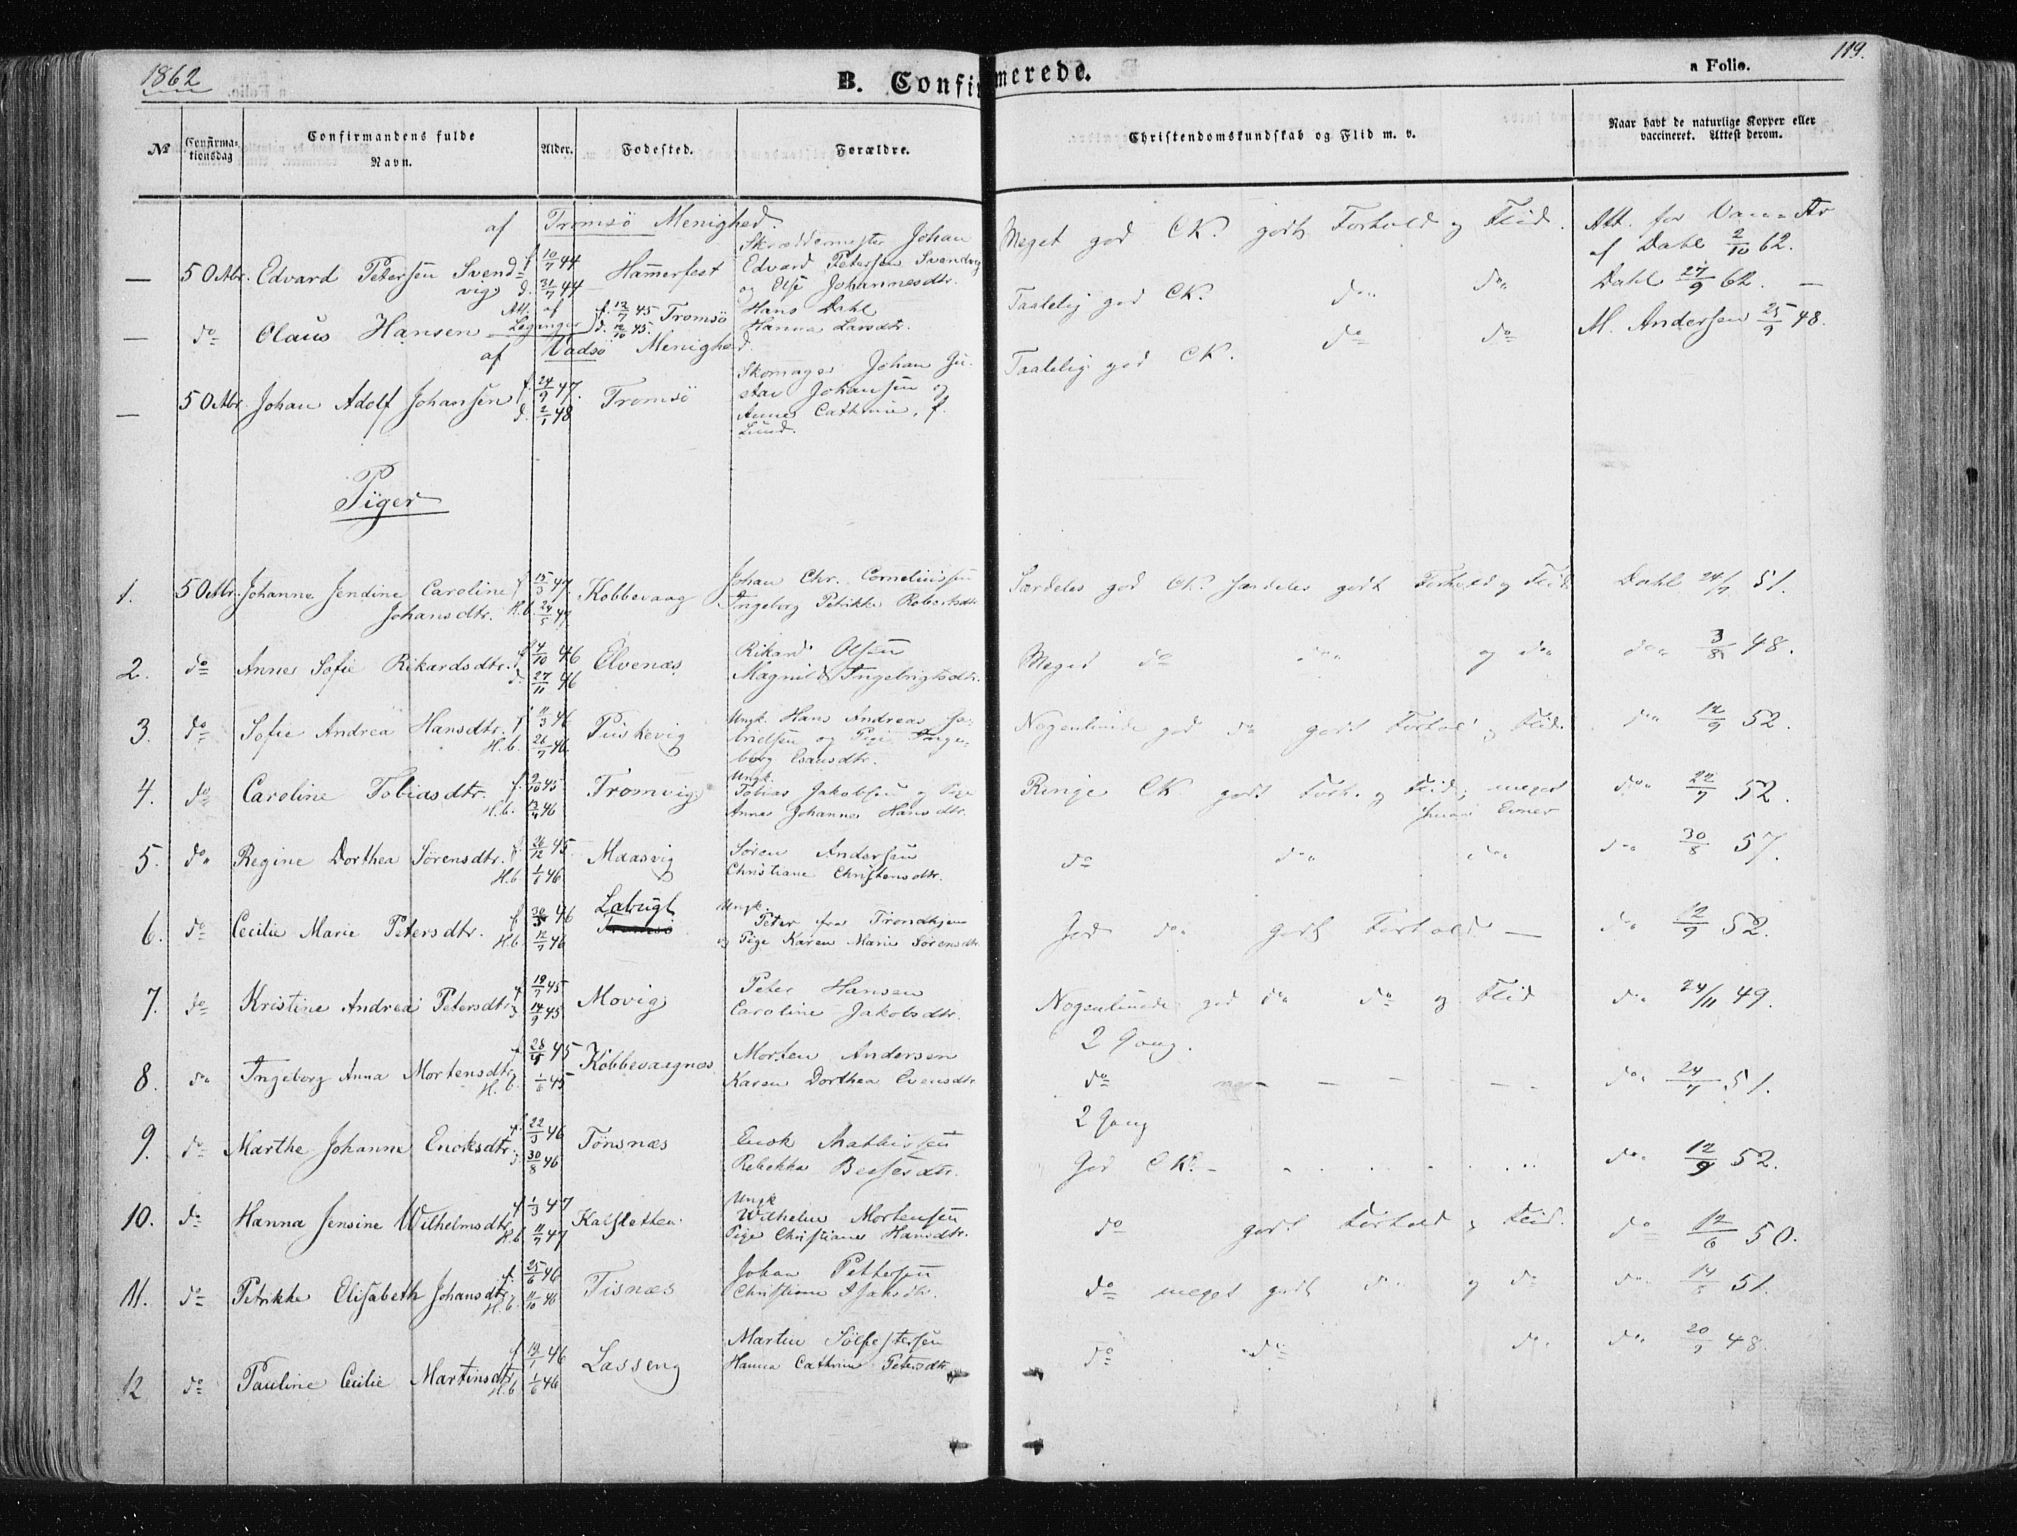 1862
B. Confirmerede.
a Folio.
119.
№
Confirma-
tionsdag
Confirmandens fulde
Navn.
Alder.
Fødested.
Forældre.
Christendomskundskab og Flid m. v.
Naar havt de naturlige Kopper eller
vaccineret. Attest derom.
af Tromsö Menighed.
— 5 Octbr. Edvard Petersen Svend-
vig f. 10/7 44 d. 31/7 44 Hamerfest
Skræddermester Johan
Edvard Petersen Svendvig
og Else Johannesdtr.
Meget god CK. godt Forhold og Flid.
Att. for Dahl 2/10 62.
— do Olaus Hansen f. 12/7 45 d. 12/10 45. Tromsö
Hans Dahl
Hanna Larsdtr.
Taalelig god CK. do do
Dahl 27/9 62. —
af Vadsö Menighed.
— 5 Octbr. Johan Adolf Johansen f. 24/9 47. d. 2/1 48 Tromsö
Skomager Johan Gu-
stav Johansen og
Anne Cathrine, f.
Lund.
Taalelig god CK. do do
M. Andersen 25/9 48.
Piger
1. 5 Octbr. Johanne Jendine Caroline
Johansdtr. f. 15/3 47. H.b. 24/5 47 Kobbevaag
Johan Chr. Corneliussen
Ingeborg Petrikke Robertsdtr.
Særdeles god CK. særdeles godt Forhold og Flid
Dahl 24/7 51.
2. do Anne Sofie Rikardsdtr. f. 4/10 46 d. 27/11 46 Elvenæs
Rikard Olsen
Magnild Ingebrigtsdtr.
Meget do do og do
do 3/8 48.
3. do Sofie Andrea Hansdtr. f. 11/3 46 H.b. 26/7 46.
Ungk. Hans Andreas Ga-
brielsen og Pige Inge-
borg Esausdtr.
Nogenlunde god do godt Forhold og Flid.
do 12/9 52.
4. do Caroline Tobiasdtr. f. 9/10 45 H.b. 46 Tromvig
Ungk.
Tobias Jakobsen og Pige
Anne Johanne Hansdtr.
Ringe CK godt Forh. og Flid, meget
smaa Evner
do 22/7 52.
5. do Regine Dorthea Sørensdtr. f. 26/12 45. H.b 46 Maasvig
Søren Andersen
Christiane Christensdtr.
do do do
do 30/8 57.
6. do Cecilie Marie Petersdtr. f. 46 H.b. 12/7 46
Ungk.
Peter fra Trondhjem
og Pige Karen Marie Sørensdtr.
God do godt Forhold —
do 12/9 52.
7. do Kristine Andrea Petersdtr. f. 19/7 45 d. 14/9 45 Movig
Peter Hansen
Caroline Jakobsdtr.
Nogenlunde god do do og Flid
2 Gang.
do 24/11 49.
8. do Ingeborg Anna Mortensdtr. f. 45 H.b. 1/6 45 Kobbevaagnæs
Morten Andersen
Karen Dorthea Evensdtr.
do — — — — — —
2 Gang
do 24/7 51.
9. do Marthe Johanna Enoksdtr. f. 22/3 46 d. 30/8 46 Tønsnæs
Enok Mathissen
Rebekka
God CK.
do 12/9 52.
10. do Hanna Jensine Wilhelmsdtr. f. 1/3 47 H.b. 11/7 47 Kalfsletten
Ungk
Wilhelm Mortensen
Pige Christiane Hansdtr.
do godt Forhold og Flid.
do 12/6 50.
11. do Petrikke Elisabeth Johansdtr. f. 25/6 46 H.b. 11/10 46 Tisnæs
Johan Pettersen
Christiane Isaksdtr.
do meget godt do og do
do 51.
12 do Pauline Cecilie Martinsdtr. f. 46 H.b. 1/6 46 Lasseng
Martin Sölfestersen
Hanna Cathrine Petersdtr.
do do do.
do 48.